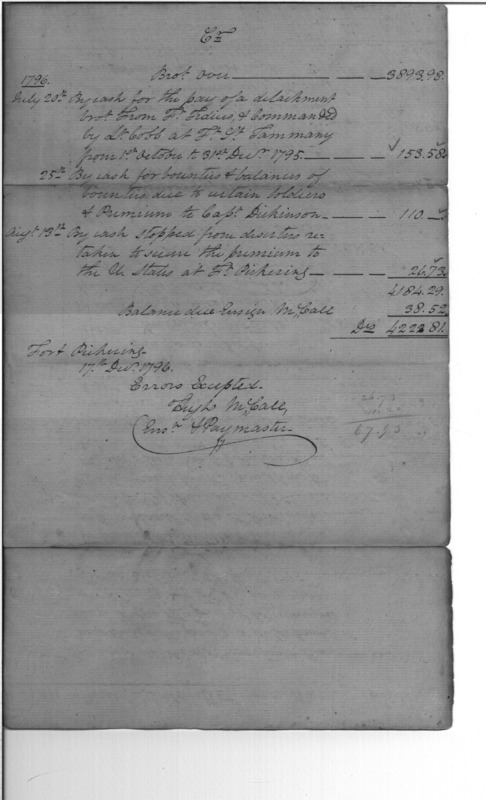 Cr
Brot. Over 3893.98.
1796.
July 20th By cash for the pay of a detachment
brot. From Ft. Fidius, & Commanded
by Lt. Cobb at Ft. St. Tammany
from 1st October to 31st Decr. 1795. 153.58
25th By cash for bounties & balances of
bounties due to certain Soldiers
& Premium to Capt. Dickinson 110.
Augt. 13th By cash stopped from deserters re-
taken to secure the premium to
the U. States at Ft. Pickering 26.73.
4184.29.
Balance due Ensign McCall 38.52
Drs 4222 81.
Fort Pickering
17th Decr. 1796.
Errors Excepted.
Hugh McCall,
Ensn. & Paymaster
26.73
67.93